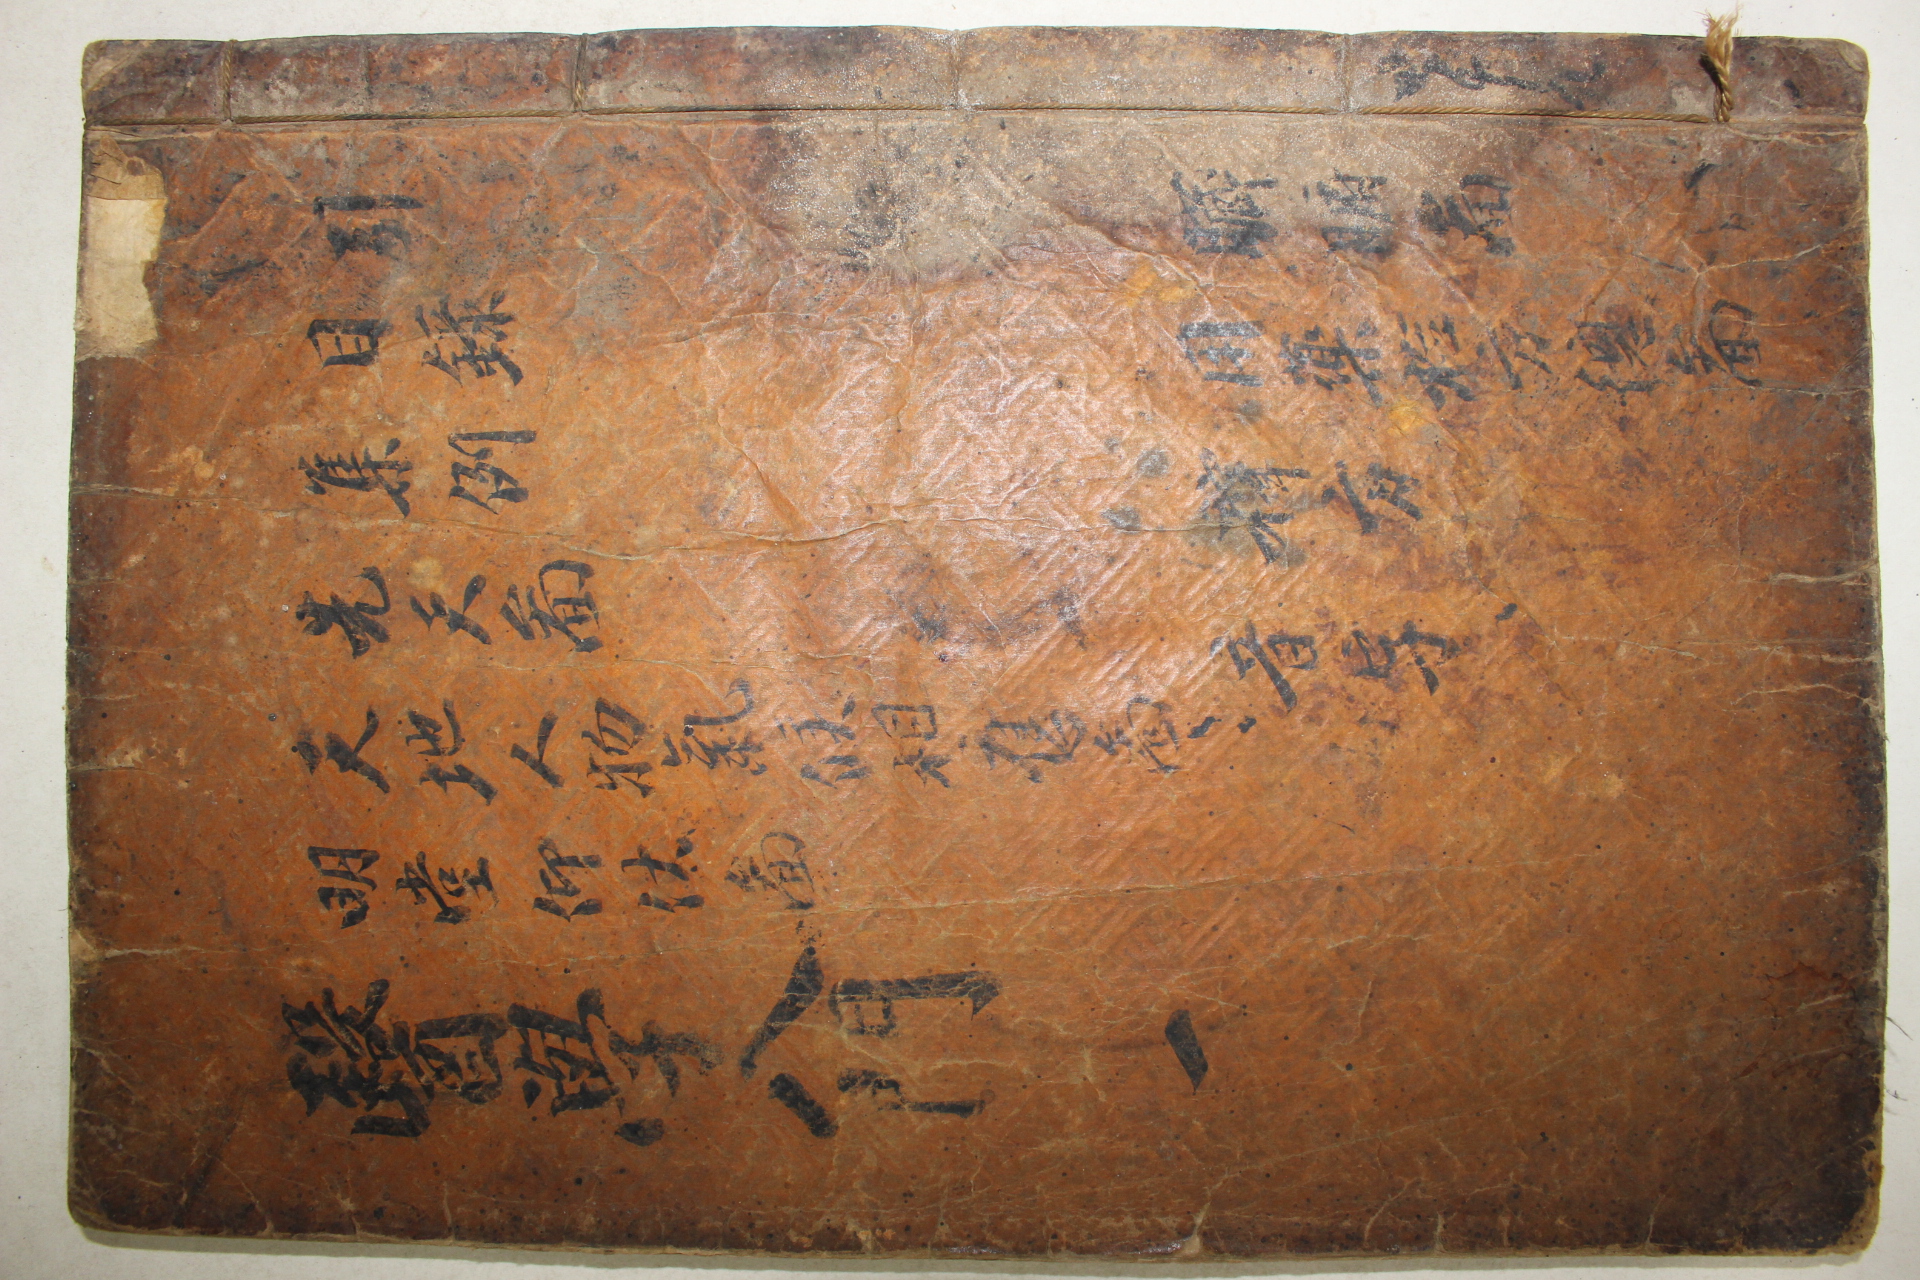 引
目錄
集例
先天圖
天地人物氣候相應圖
明堂仰伏圖
醫學入門 一
臟腑圖
用藥檢方總圖
釋方
音字